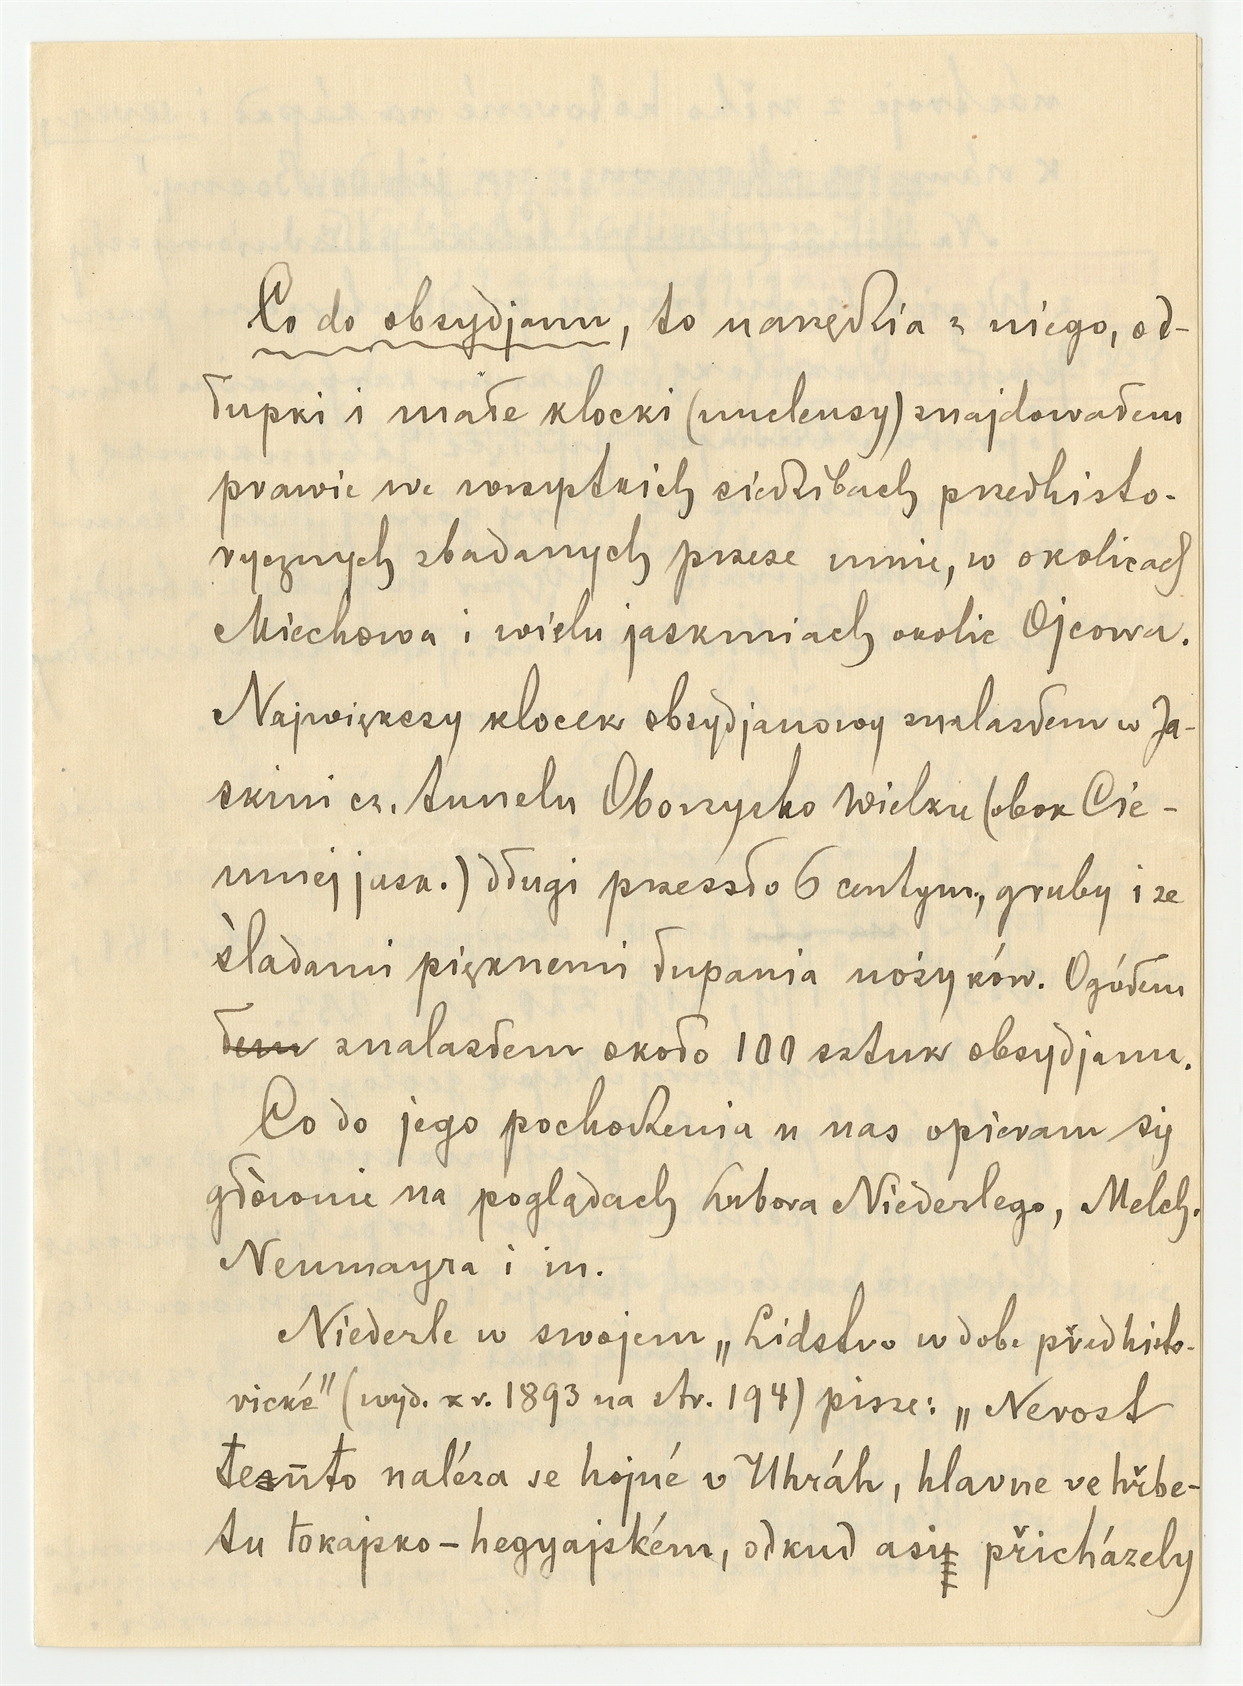 Co do obsydjanu, to narzędzia z niego, od-
łupki i małe klocki (nucleusy) znajdowałem
prawie we wszystkich siedzibach przedhisto-
rycznych zbadanych przeze mnie, w okolicach
Miechowa i wielu jaskiniach okolic Ojcowa.
Największy klocek obsydjanowy znalazłem w Ja-
skini cz. tunelu Oborzysko Wielkie (obok Cie-
mnej jask.) długi przeszło 6 centym., gruby i ze
śladami pięknemi łupania nożyków. Ogółem
łem znalazłem około 100 sztuk obsydjanu.
Co do jego pochodzenia u nas opieram się
głównie na poglądach Lubora Niederlego, Melch.
Neumayra i in.
Niederle w swojem „Lidstvo w dobe předhisto-
rické" (wyd. z r. 1893 na str. 194) pisze: „Nerost
tento naléza se hojné v Uhráh, hlavne ve hřbe-
tu tokajsko-hegyajském, odkud asi přicházely